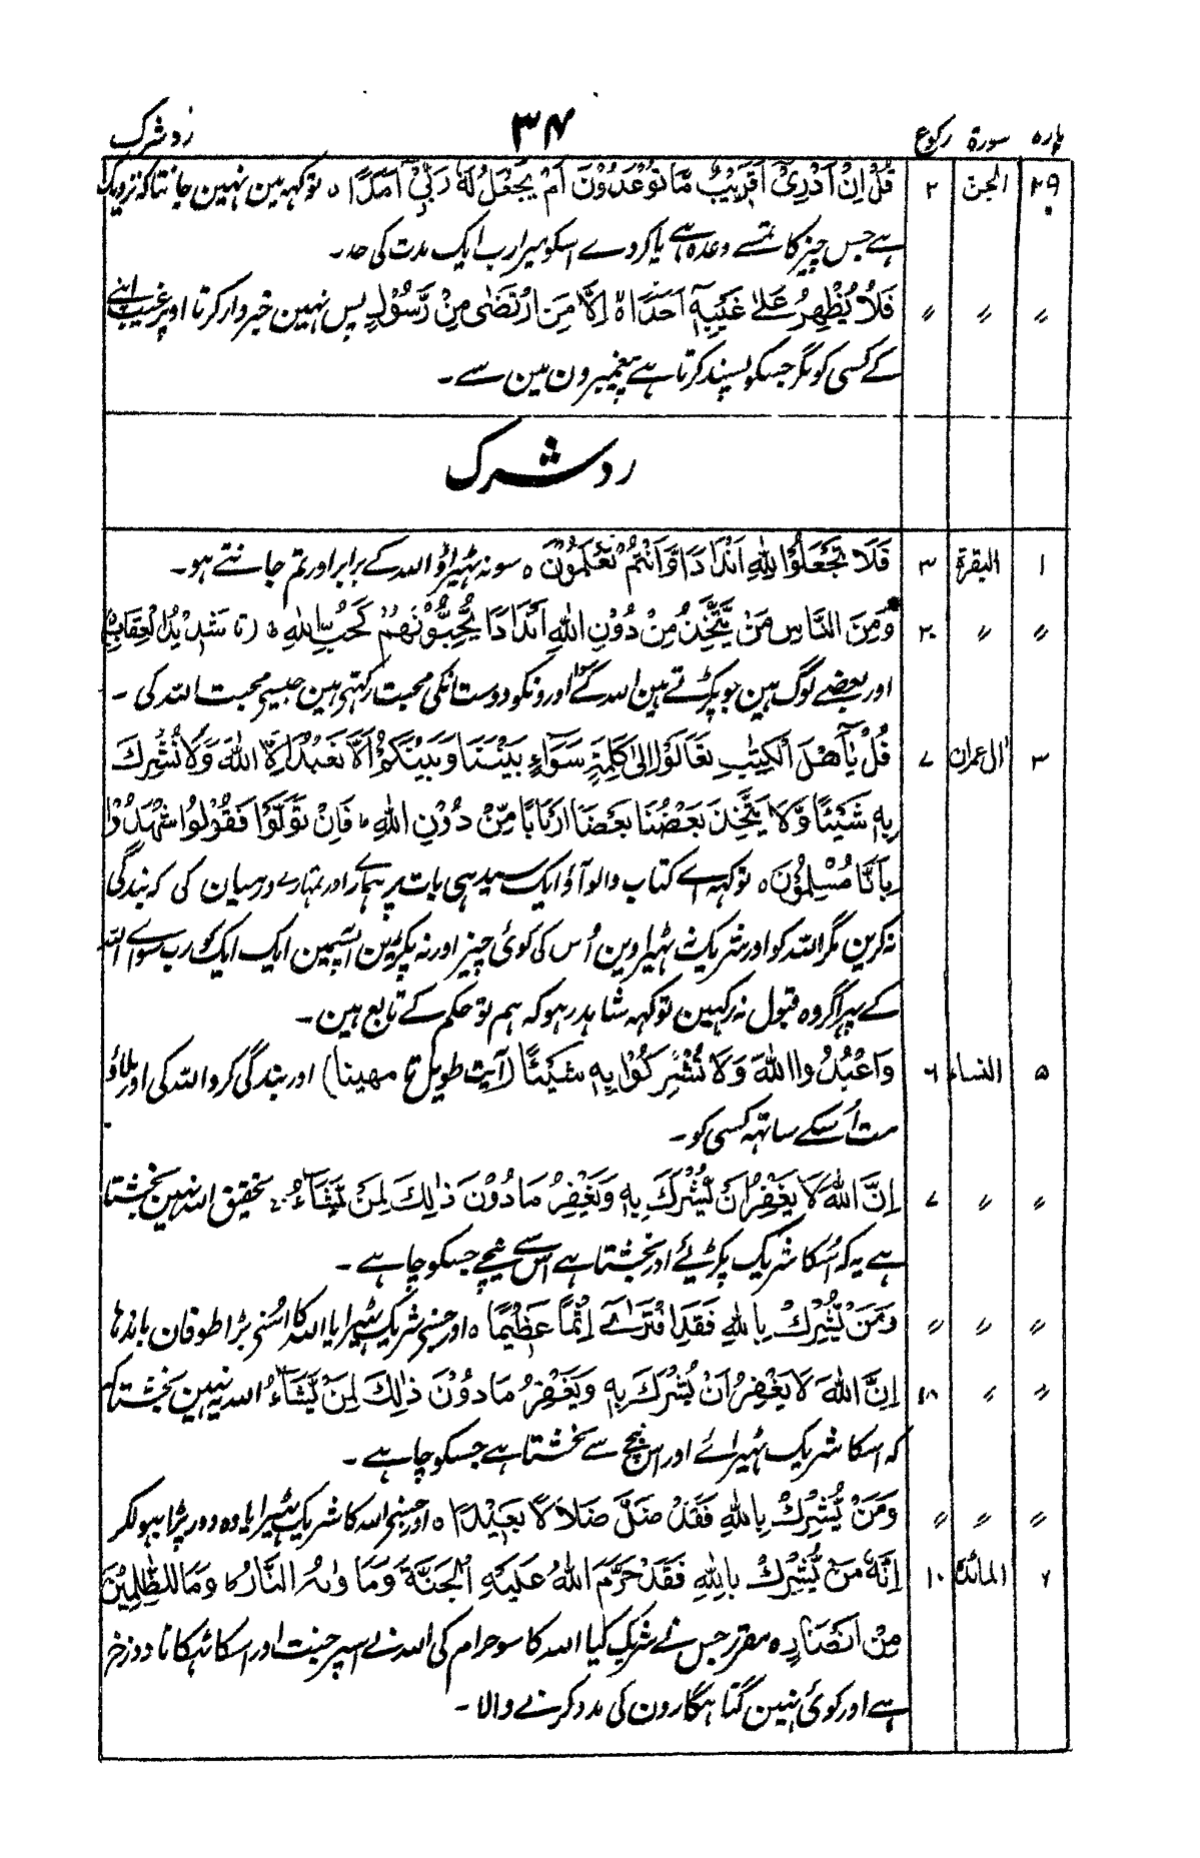 پارہ سورۃ رکوع ۳۴ ردشرک
۲۹ الجن ۲ قُلْ اِنْ اَدْرِیْٓ اَقَرِیْبٌ مَّا تُوْعَدُوْنَ اَمْ یَجْعَلُ لَهٗ رَبِّیْٓ اَمَدًا ہ توکہہ مین نہین جانتا کہ نزدیک
ہے جس چیز کا تمسے وعدہ ہے یا کردے اسکو میرا رب ایک مدت کی حد۔
〃 〃 〃 فَلَا یُظْهِرُ عَلٰے غَیْبِهٖٓ اَحَدًا ہ اِلَّا مَنِ ارْتَضٰی مِنْ رَّسُوْلٍ پس نہین خبردار کرتا اوپر غیب اپنے
کے کسی کو مگر جسکو پسند کرتا ہے پیغمبرون مین سے۔
ردشرک
۱ البقرۃ ۳ فَلَا تَجْعَلُوْا لِلّٰهِ اَنْدَادًا وَّاَنْتُمْ تَعْلَمُوْنَ ہ سو نہ ٹہیراؤ اللہ کے برابر اور تم جانتے ہو۔
〃 〃 ۲۰ وَمِنَ النَّاسِ مَنْ یَّتَّخِذُ مِنْ دُوْنِ اللّٰهِ اَنْدَادًا یُّحِبُّوْنَهُمْ کَحُبِّ اللّٰهِ ط (تا شَدِیْدُ الْعِقَابِ)
اور بعضے لوگ ہین جو پکڑتے ہین اللہ کے سوا اورونکو دوست انکی محبت رکہتے ہین جیسے محبت اللہ کی ۔
۳ اٰل عمران ۷ قُلْ یٰٓاَهْلَ الْکِتٰبِ تَعَالَوْا اِلٰی کَلِمَةٍ سَوَآءٍ بَیْنَنَا وَبَیْنَکُمْ اَلَّا نَعْبُدَ اِلَّا اللّٰهَ وَلَا نُشْرِكَ
بِهٖ شَیْئًا وَّلَا یَتَّخِذَ بَعْضُنَا بَعْضًا اَرْبَابًا مِّنْ دُوْنِ اللّٰهِ ط فَاِنْ تَوَلَّوْا فَقُوْلُوا اشْهَدُوْا
بِاَنَّا مُسْلِمُوْنَ ہ توکہہ اے کتاب والو آؤ ایک سیدہی بات پر ہمارے اور تمہارے درمیان کی کہ بندگی
نہ کرین مگر اللہ کو اور شریک نہ ٹہیراوین اُس کی کوئی چیز اور نہ پکڑین آپسمین ایک ایک کو رب سواے اللہ
کے پہر اگر وہ قبول نہ رکہین توکہہ شاہد رہو کہ ہم تو حکم کے تابع ہین۔
۵ النساء ۶ وَاعْبُدُوا اللّٰهَ وَلَا تُشْرِکُوْا بِهٖ شَیْئًا (آیت طویل تا مهینا) اور بندگی کرو اللہ کی اور ملاؤ
مت اُسکے ساتہہ کسی کو۔
〃 〃 ۷ اِنَّ اللّٰهَ لَا یَغْفِرُ اَنْ یُّشْرَكَ بِهٖ وَیَغْفِرُ مَا دُوْنَ ذٰلِكَ لِمَنْ یَّشَآءُ ج تحقیق اللہ نہین بخشتا
ہے یہ کہ اُسکا شریک پکڑیئے اور بخشتا ہے اس سے نیچے جسکو چاہے ۔
〃 〃 〃 وَمَنْ یُّشْرِكْ بِاللّٰهِ فَقَدِ افْتَرٰے اِثْمًا عَظِیْمًا ہ اور جسنے شریک ٹہیرایا اللہ کا اُسنے بڑا طوفان باندہا
〃 〃 ۱۸ اِنَّ اللّٰهَ لَا یَغْفِرُ اَنْ یُّشْرَكَ بِهٖ وَیَغْفِرُ مَا دُوْنَ ذٰلِكَ لِمَنْ یَّشَآءُ ط اللہ یہ نہین بخشتا ہے
کہ اسکا شریک ٹہیرائے اور اس نیچے سے بخشتا ہے جسکو چاہے ۔
〃 〃 〃 وَمَنْ یُّشْرِكْ بِاللّٰهِ فَقَدْ ضَلَّ ضَلَالًا بَعِیْدًا ہ اور جسنے اللہ کا شریک ٹہیرایا وہ دور پڑا بہولکر
۷ المائدہ ۱۰ اِنَّهٗ مَنْ یُّشْرِكْ بِاللّٰهِ فَقَدْ حَرَّمَ اللّٰهُ عَلَیْهِ الْجَنَّةَ وَمَاْوٰىهُ النَّارُ ط وَمَا لِلظّٰلِمِیْنَ
مِنْ اَنْصَارٍ ہ مقرر جس نے شریک کیا اللہ کا سو حرام کی اللہ نے اسپر جنت اور اسکا ٹہکانا دوزخ
ہے اور کوئی نہین گناہگارون کی مدد کرنے والا ۔